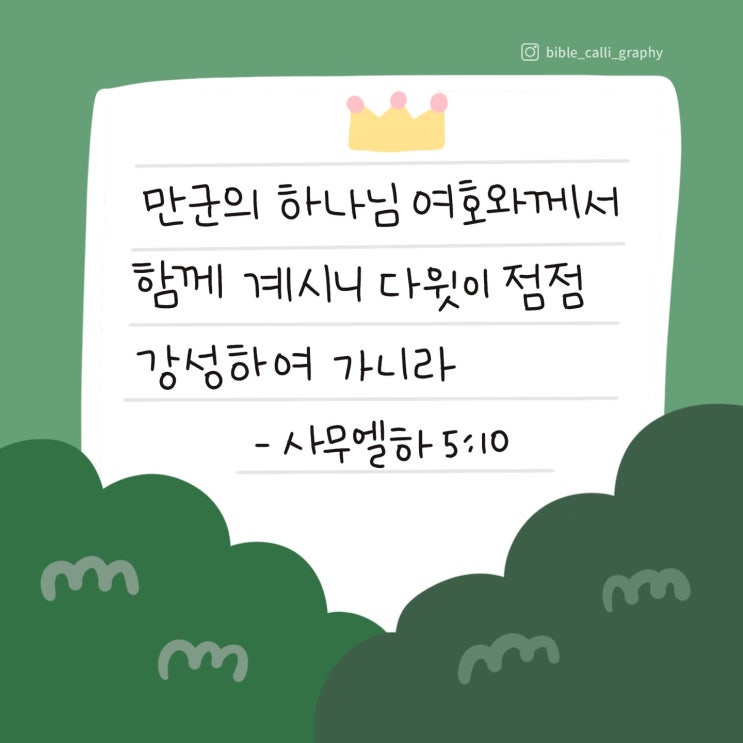 bible_calli_graphy
만군의 하나님 여호와께서
함께 계시니 다윗이 점점
강성하여 가니라
- 사무엘하 5:10